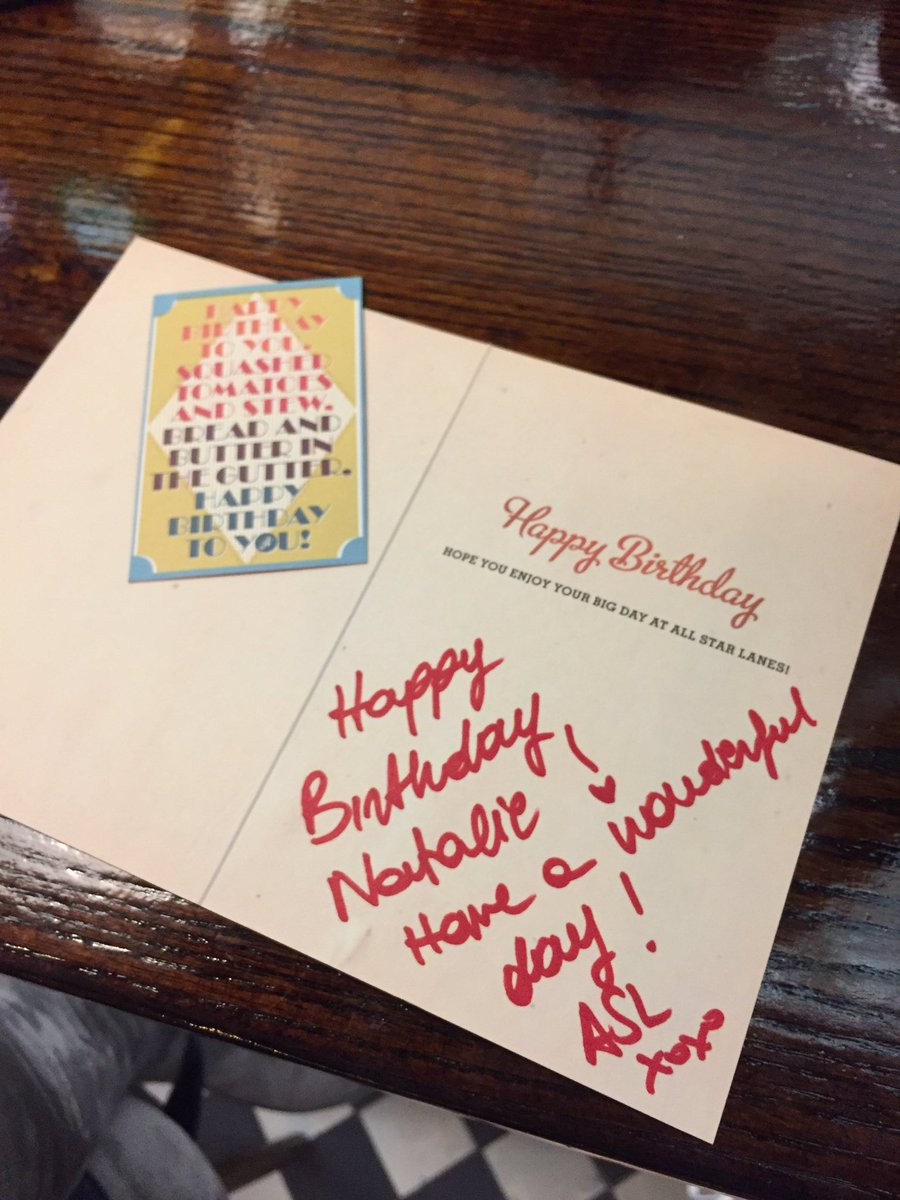 HAPPY
BIRTHDAY
TO YOU,
SQUASHED
TOMATOES
AND STEW.
BREAD AND
BUTTER IN
THE GUTTER.
HAPPY
BIRTHDAY
TO YOU!
Happy Birthday
HOPE YOU ENJOY YOUR BIG DAY AT ALL STAR LANES!
Happy
Birthday,
Natalie!
Have a wonderful
day!
ASL
xoxo